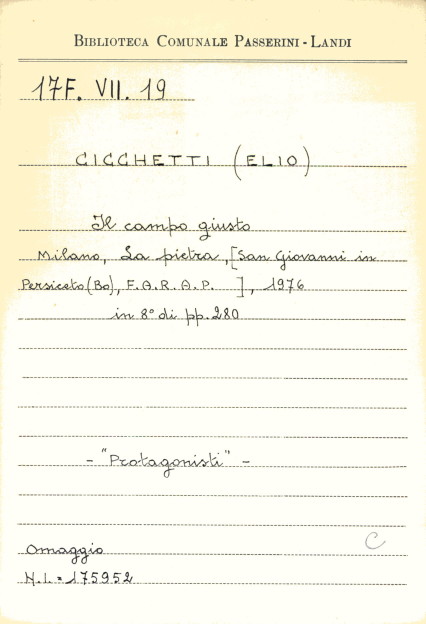 BIBLIOTECA COMUNALE PASSERINI - LANDI
17F. VII. 19
CICCHETTI (ELIO)
Il campo giusto
Milano, La pietra, [San Giovanni in
Persiceto (Bo), F.A.R.A.P. ], 1976
in 8° di pp. 280
- "Protagonisti" -
C
Omaggio
N.I. = 175952